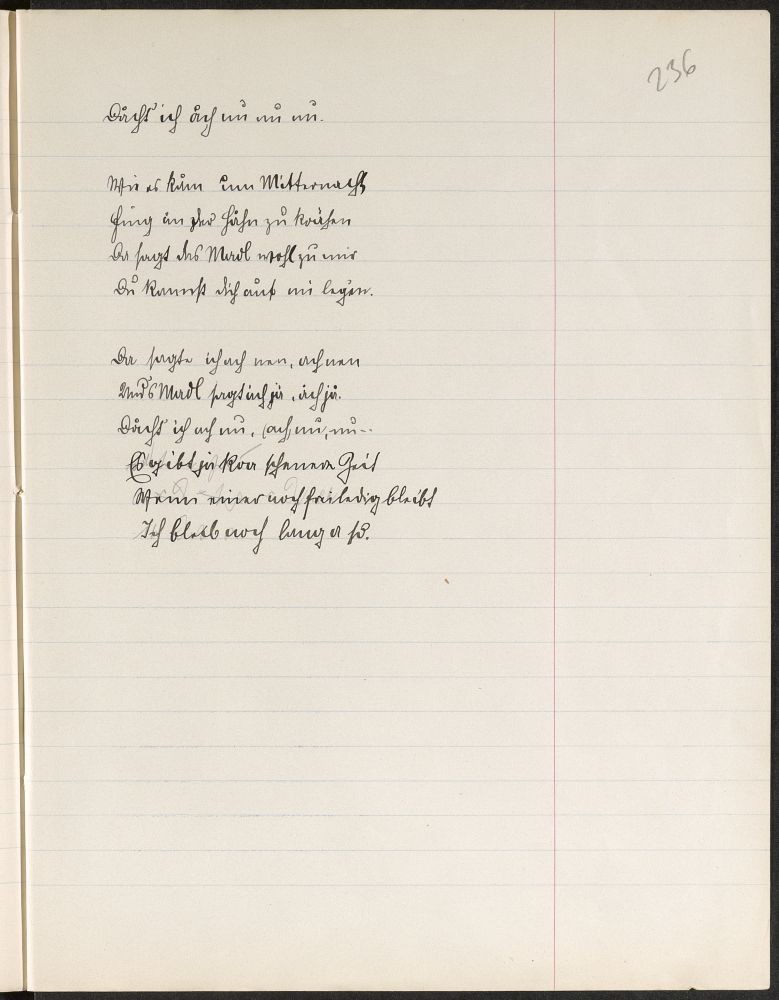 236
Dacht ich ach nu nu nu.
Wie es kam um Mitternacht
fing an der Hahn zu krähen
Da sagt das Madl wohl zu mir
Du kannst dich auf mi legen.
Da sagte ich ach nen, ach nen
Und's Madl sagt ach ja, ach ja.
Dacht ich ach nu, ach, nu, nu--
Es gibt ja koa schenere Zeit
Wenn einer noch frei ledig bleibt
Ich bleib noch lang a so.